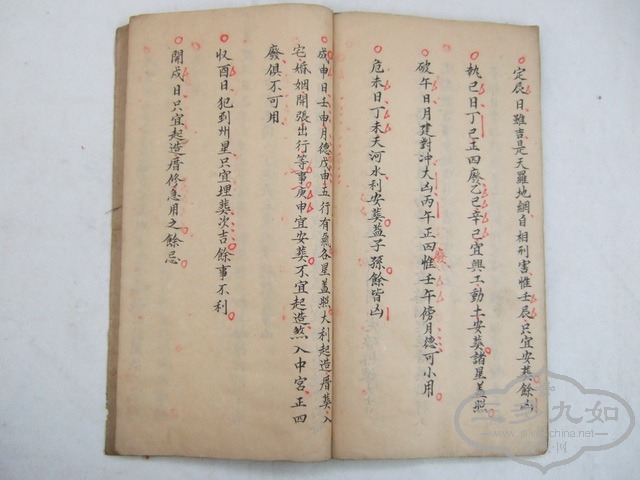 定辰日雖吉是天羅地網自相刑害惟壬辰只宜安葬餘凶
執巳日丁巳正四廢乙巳辛巳宜興工動土安葬諸星蓋照
破午日月建對冲大凶丙午正四廢惟壬午傍月德可小用
危未日丁未天河水利安葬益子孫餘皆凶
成申日壬申月德戊申五行有氣各星蓋照大利起造厝葬入
宅婚姻開張出行等事庚申宜安葬不宜起造煞入中宮正四
廢俱不可用
收酉日犯到州星只宜埋葬次吉餘事不利
開戌日只宜起造厝修急用之餘忌
三多九如
china.net